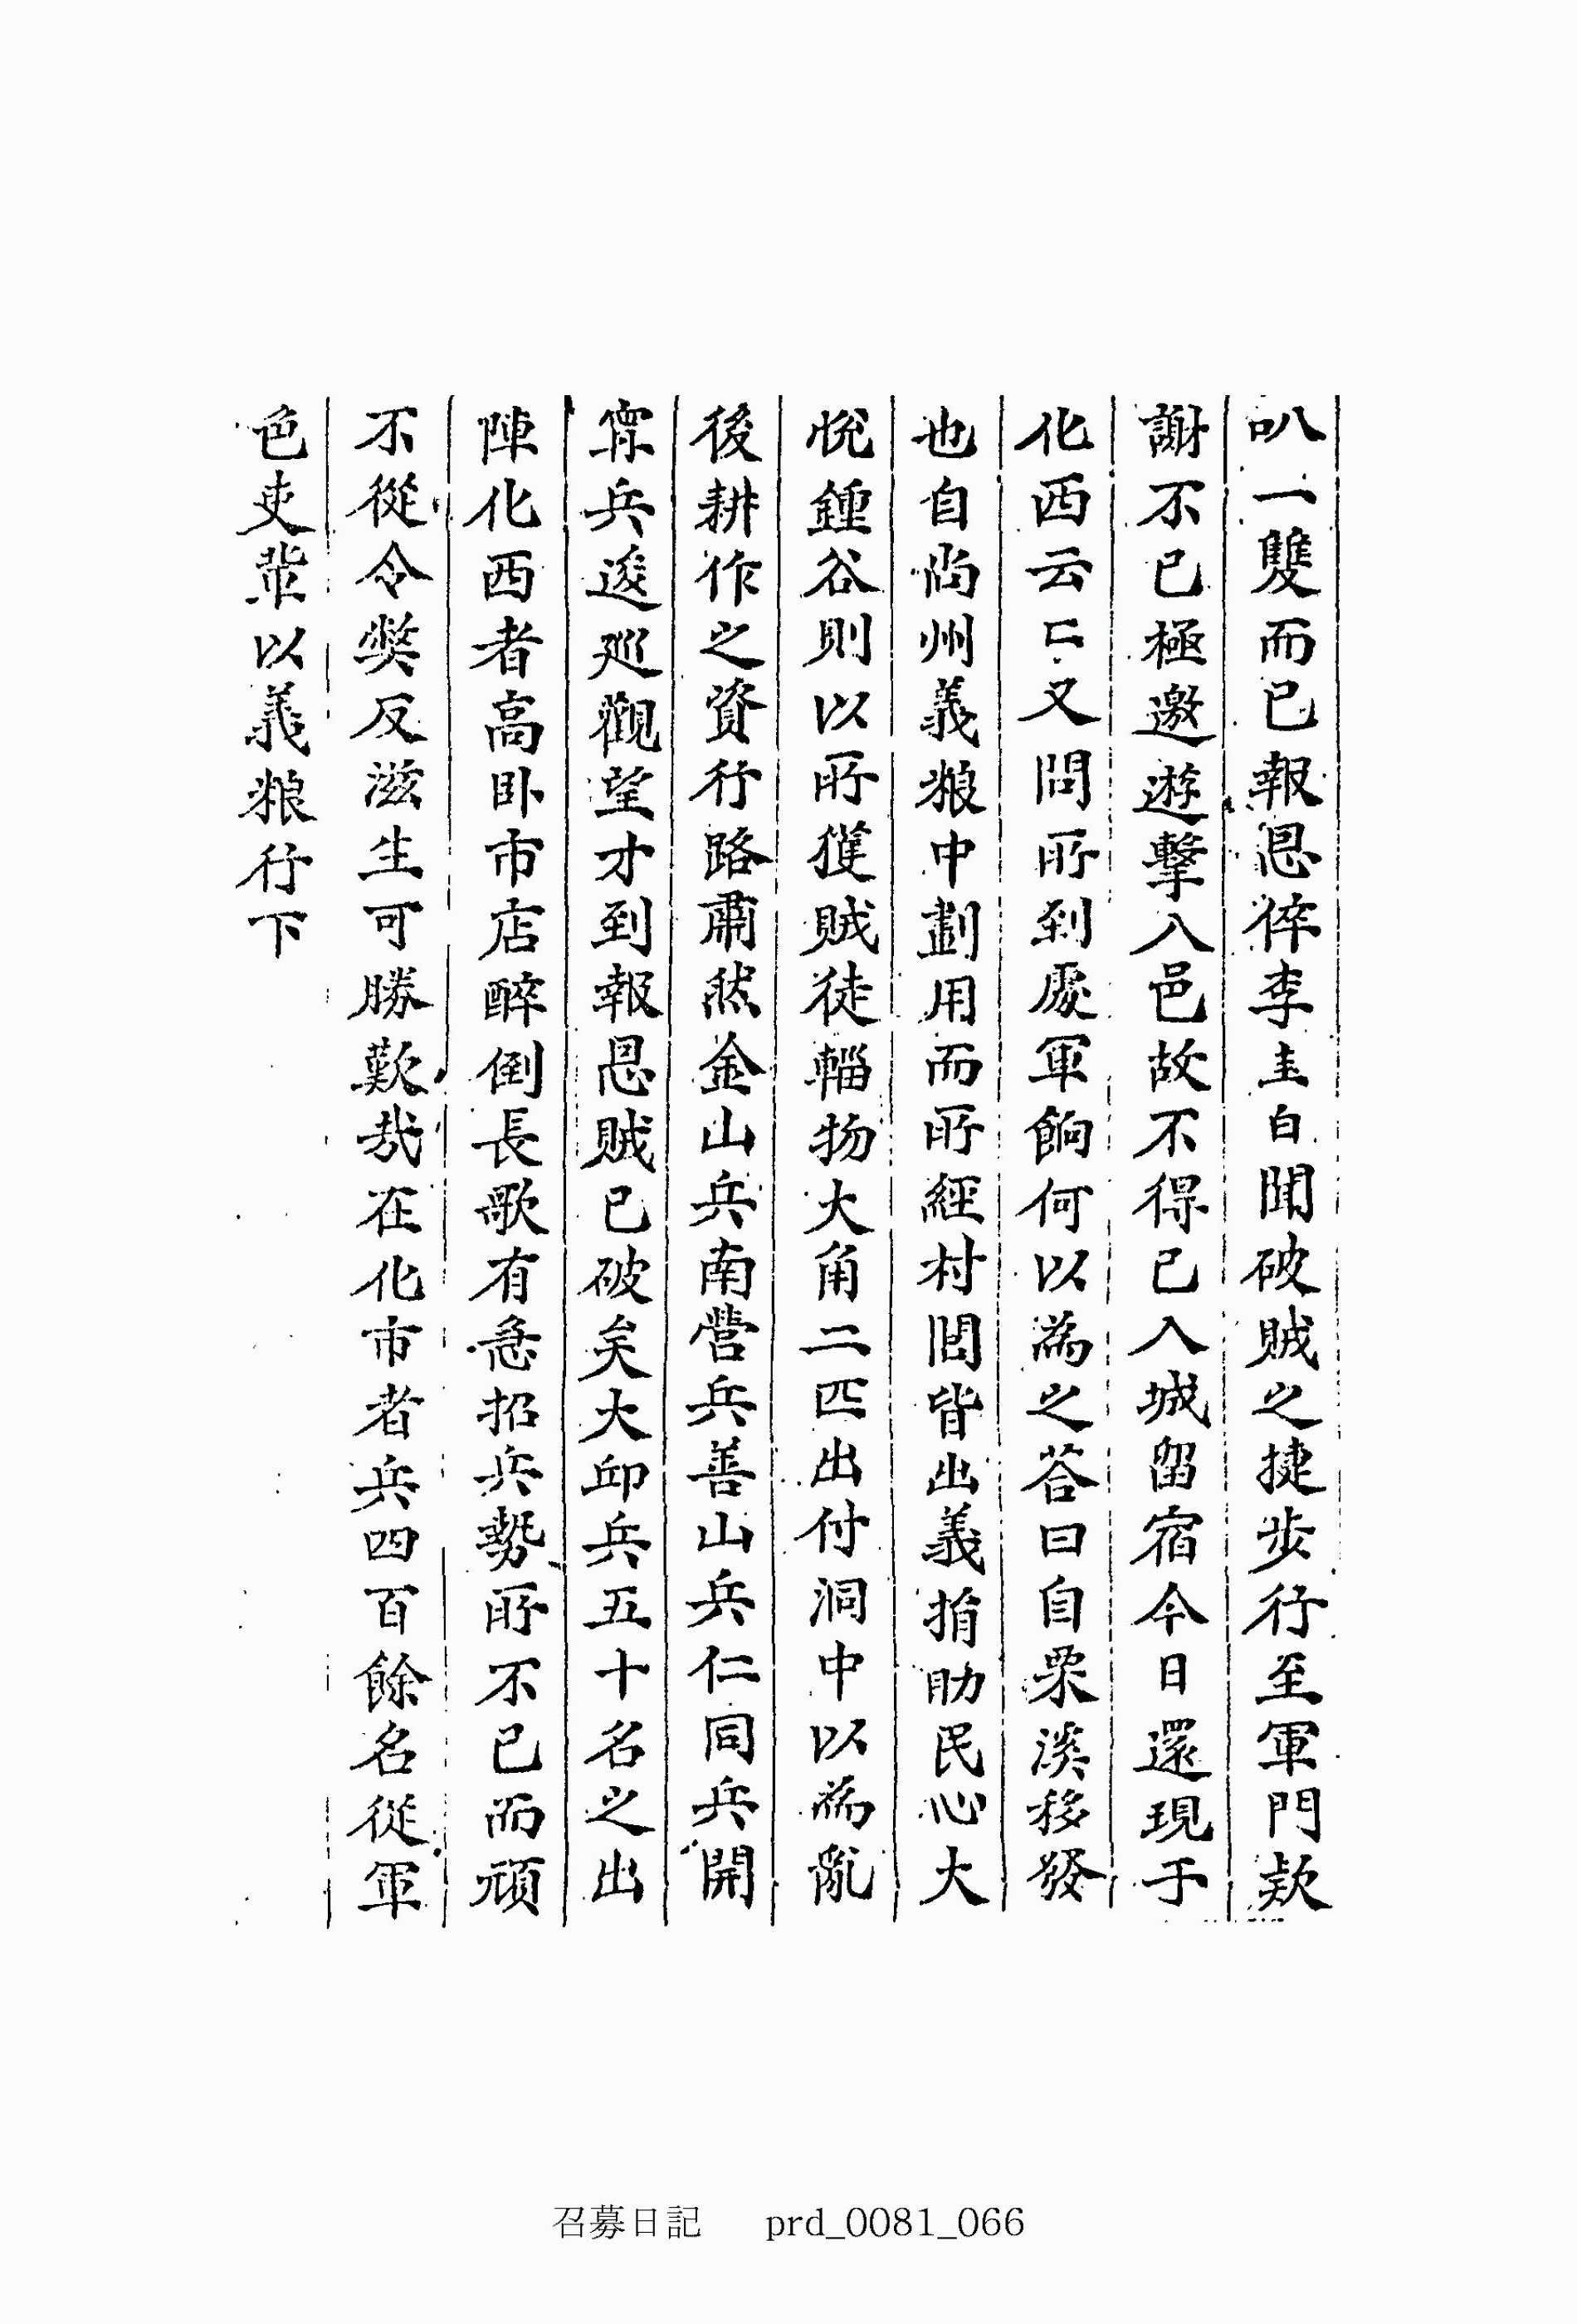 叭一雙而已報恩倅李圭白聞破賊之捷步行至軍門款
謝不已極邀遊擊入邑故不得已入城留宿今日還現于
化西云匚又問所到處軍餉何以爲之答曰自栗溪移發
也自尙州義粮中劃用而所經村閭皆出義捐助民心大
悅鍾谷則以所獲賊徒輜物大角二匹出付洞中以爲亂
後耕作之資行路肅然金山兵南營兵善山兵仁同兵開
寧兵逡巡觀望才到報恩賊已破矣大邱兵五十名之出
陣化西者高卧市店醉倒長歌有急招兵勢所不已而頑
不從令獘反滋生可勝歎哉在化市者兵四百餘名從軍
色吏輩以義粮行下
召募日記 prd_0081_066